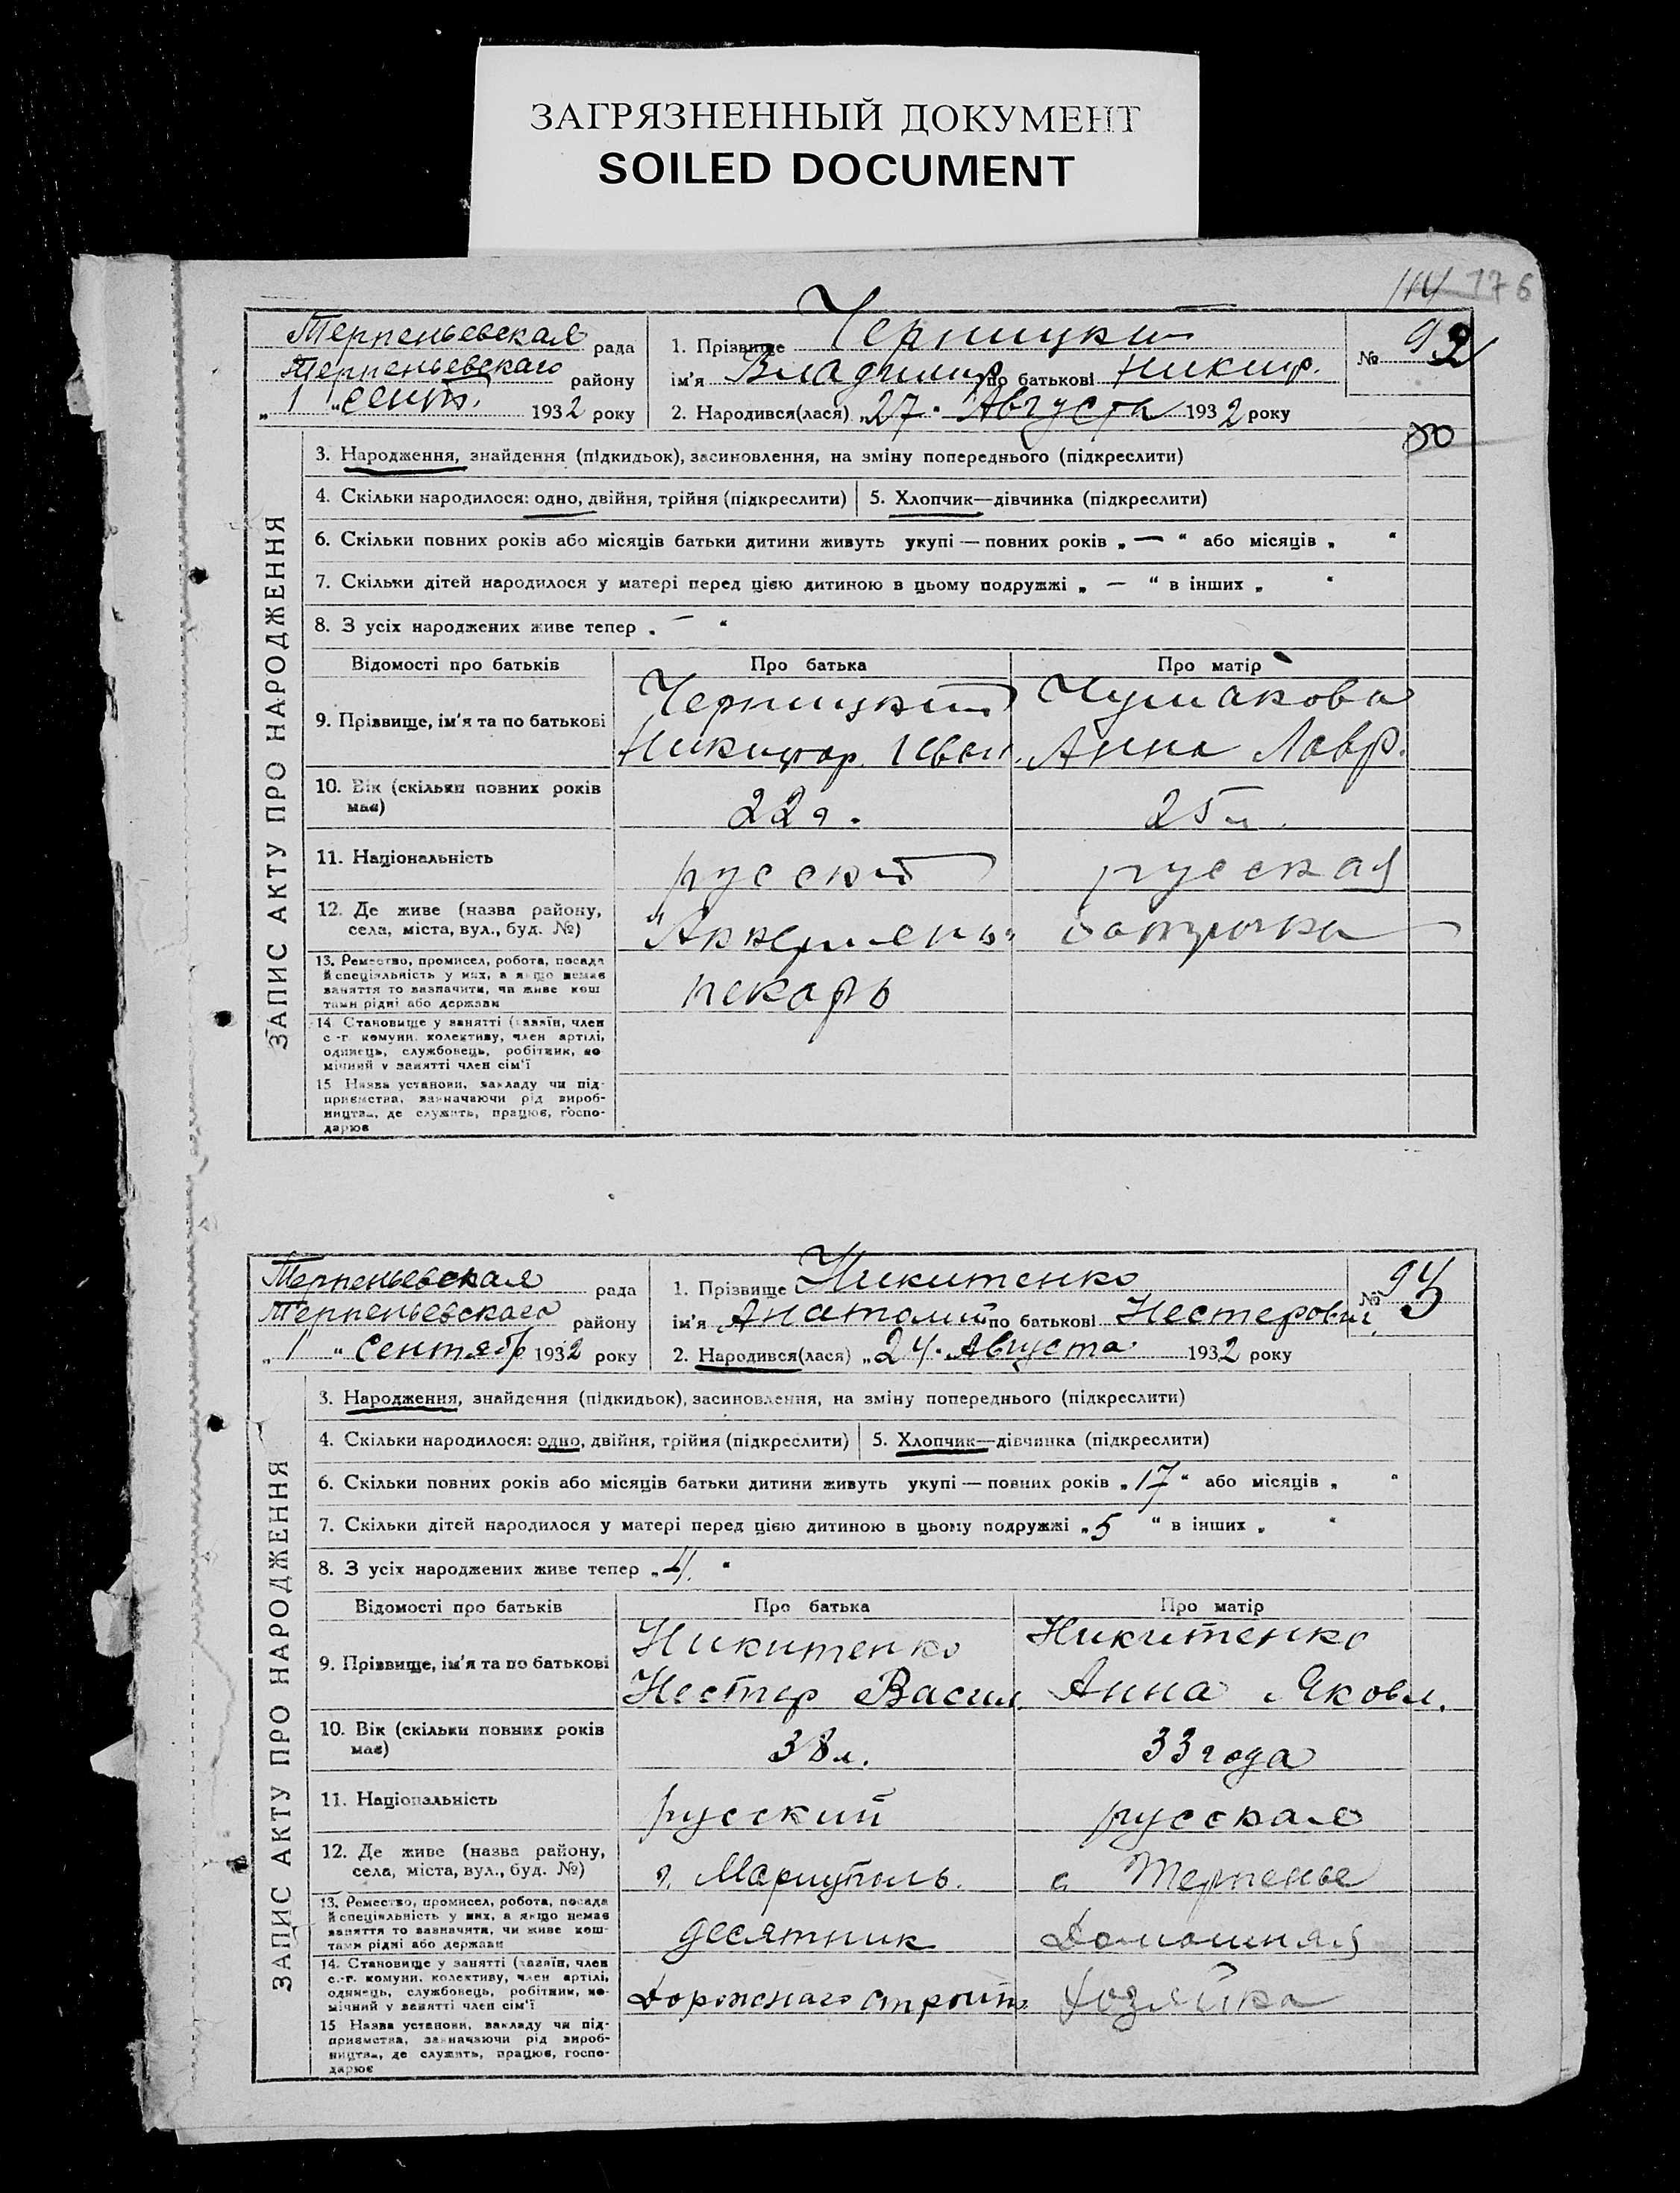 ЗАГРЯЗНЕННЫЙ ДОКУМЕНТ
SOILED DOCUMENT
176
Терпеньевская рада
Терпеньевскаго району
„1“ сент. 1932 року
1. Прізвище Черницкий
ім'я Владимир по батькові Никиф.
2. Народився(лася) „27“ Августа 1932 року
№ 92
ЗАПИС АКТУ ПРО НАРОДЖЕННЯ
3. Народження, знайдення (підкидьок), засиновлення, на зміну попереднього (підкреслити)
4. Скільки народилося: одно, двійня, трійня (підкреслити) 5. Хлопчик—дівчинка (підкреслити)
6. Скільки повних років або місяців батьки дитини живуть укупі — повних років „ — “ або місяців „ “
7. Скільки дітей народилося у матері перед цією дитиною в цьому подружжі „ — “ в інших „ “
8. З усіх народжених живе тепер „ — “
Відомості про батьків Про батька Про матір
9. Прізвище, ім'я та по батькові
Черницкий Чумакова
Никифор. Иван. Анна Лавр.
10. Вік (скільки повних років
має)
22 г. 25 л.
11. Національність русский русская
12. Де живе (назва району,
села, міста, вул., буд. №)
"Аккермень"
13. Ремество, промисел, робота, посада
й спеціяльність у них, а якщо немає
заняття то зазначити, чи живе кош
тами рідні або держави
пекарь
14. Становище у занятті (хазяїн, член
с.-г. комуни. колективу, член артілі,
одинець, службовець, робітник, по
мічний у занятті член сім'ї
15 Назва установи, закладу чи під-
приємства, зазначаючи рід вироб-
ництва, де служить, працює, госпо-
дарює
Терпеньевская рада
Терпеньевскаго району
„1“ Сентябр 1932 року
1. Прізвище Никитенко
ім'я Анатолий по батькові Нестерович.
2. Народився(лася) „24“ Августа 1932 року
№ 93
ЗАПИС АКТУ ПРО НАРОДЖЕННЯ
3. Народження, знайдення (підкидьок), засиновлення, на зміну попереднього (підкреслити)
4. Скільки народилося: одно, двійня, трійня (підкреслити) 5. Хлопчик—дівчинка (підкреслити)
6. Скільки повних років або місяців батьки дитини живуть укупі — повних років „17“ або місяців „ “
7. Скільки дітей народилося у матері перед цією дитиною в цьому подружжі „5 “ в інших „ “
8. З усіх народжених живе тепер „4. “
Відомості про батьків Про батька Про матір
9. Прізвище, ім'я та по батькові
Никитенко Никитенко
Нестер Васил Анна Яковл.
10. Вік (скільки повних років
має)
38 л. 33 года
11. Національність русский русская
12. Де живе (назва району,
села, міста, вул., буд. №)
г. Мариуполь. с. Терпенье
13. Ремество, промисел, робота, посада
й спеціяльність у них, а якщо немає
заняття то зазначити, чи живе кош-
тами рідні або держави
десятник Домошняя
14. Становище у занятті (хазяїн, член
с.-г. комуни. колективу, член артілі,
одинець, службовець, робітник, по-
мічний у занятті член сім'ї
Дорожнаго строит. Хозяйка
15 Назва установи, закладу чи під-
приємства, зазначаючи рід вироб-
ництва, де служить, працює, госпо-
дарює